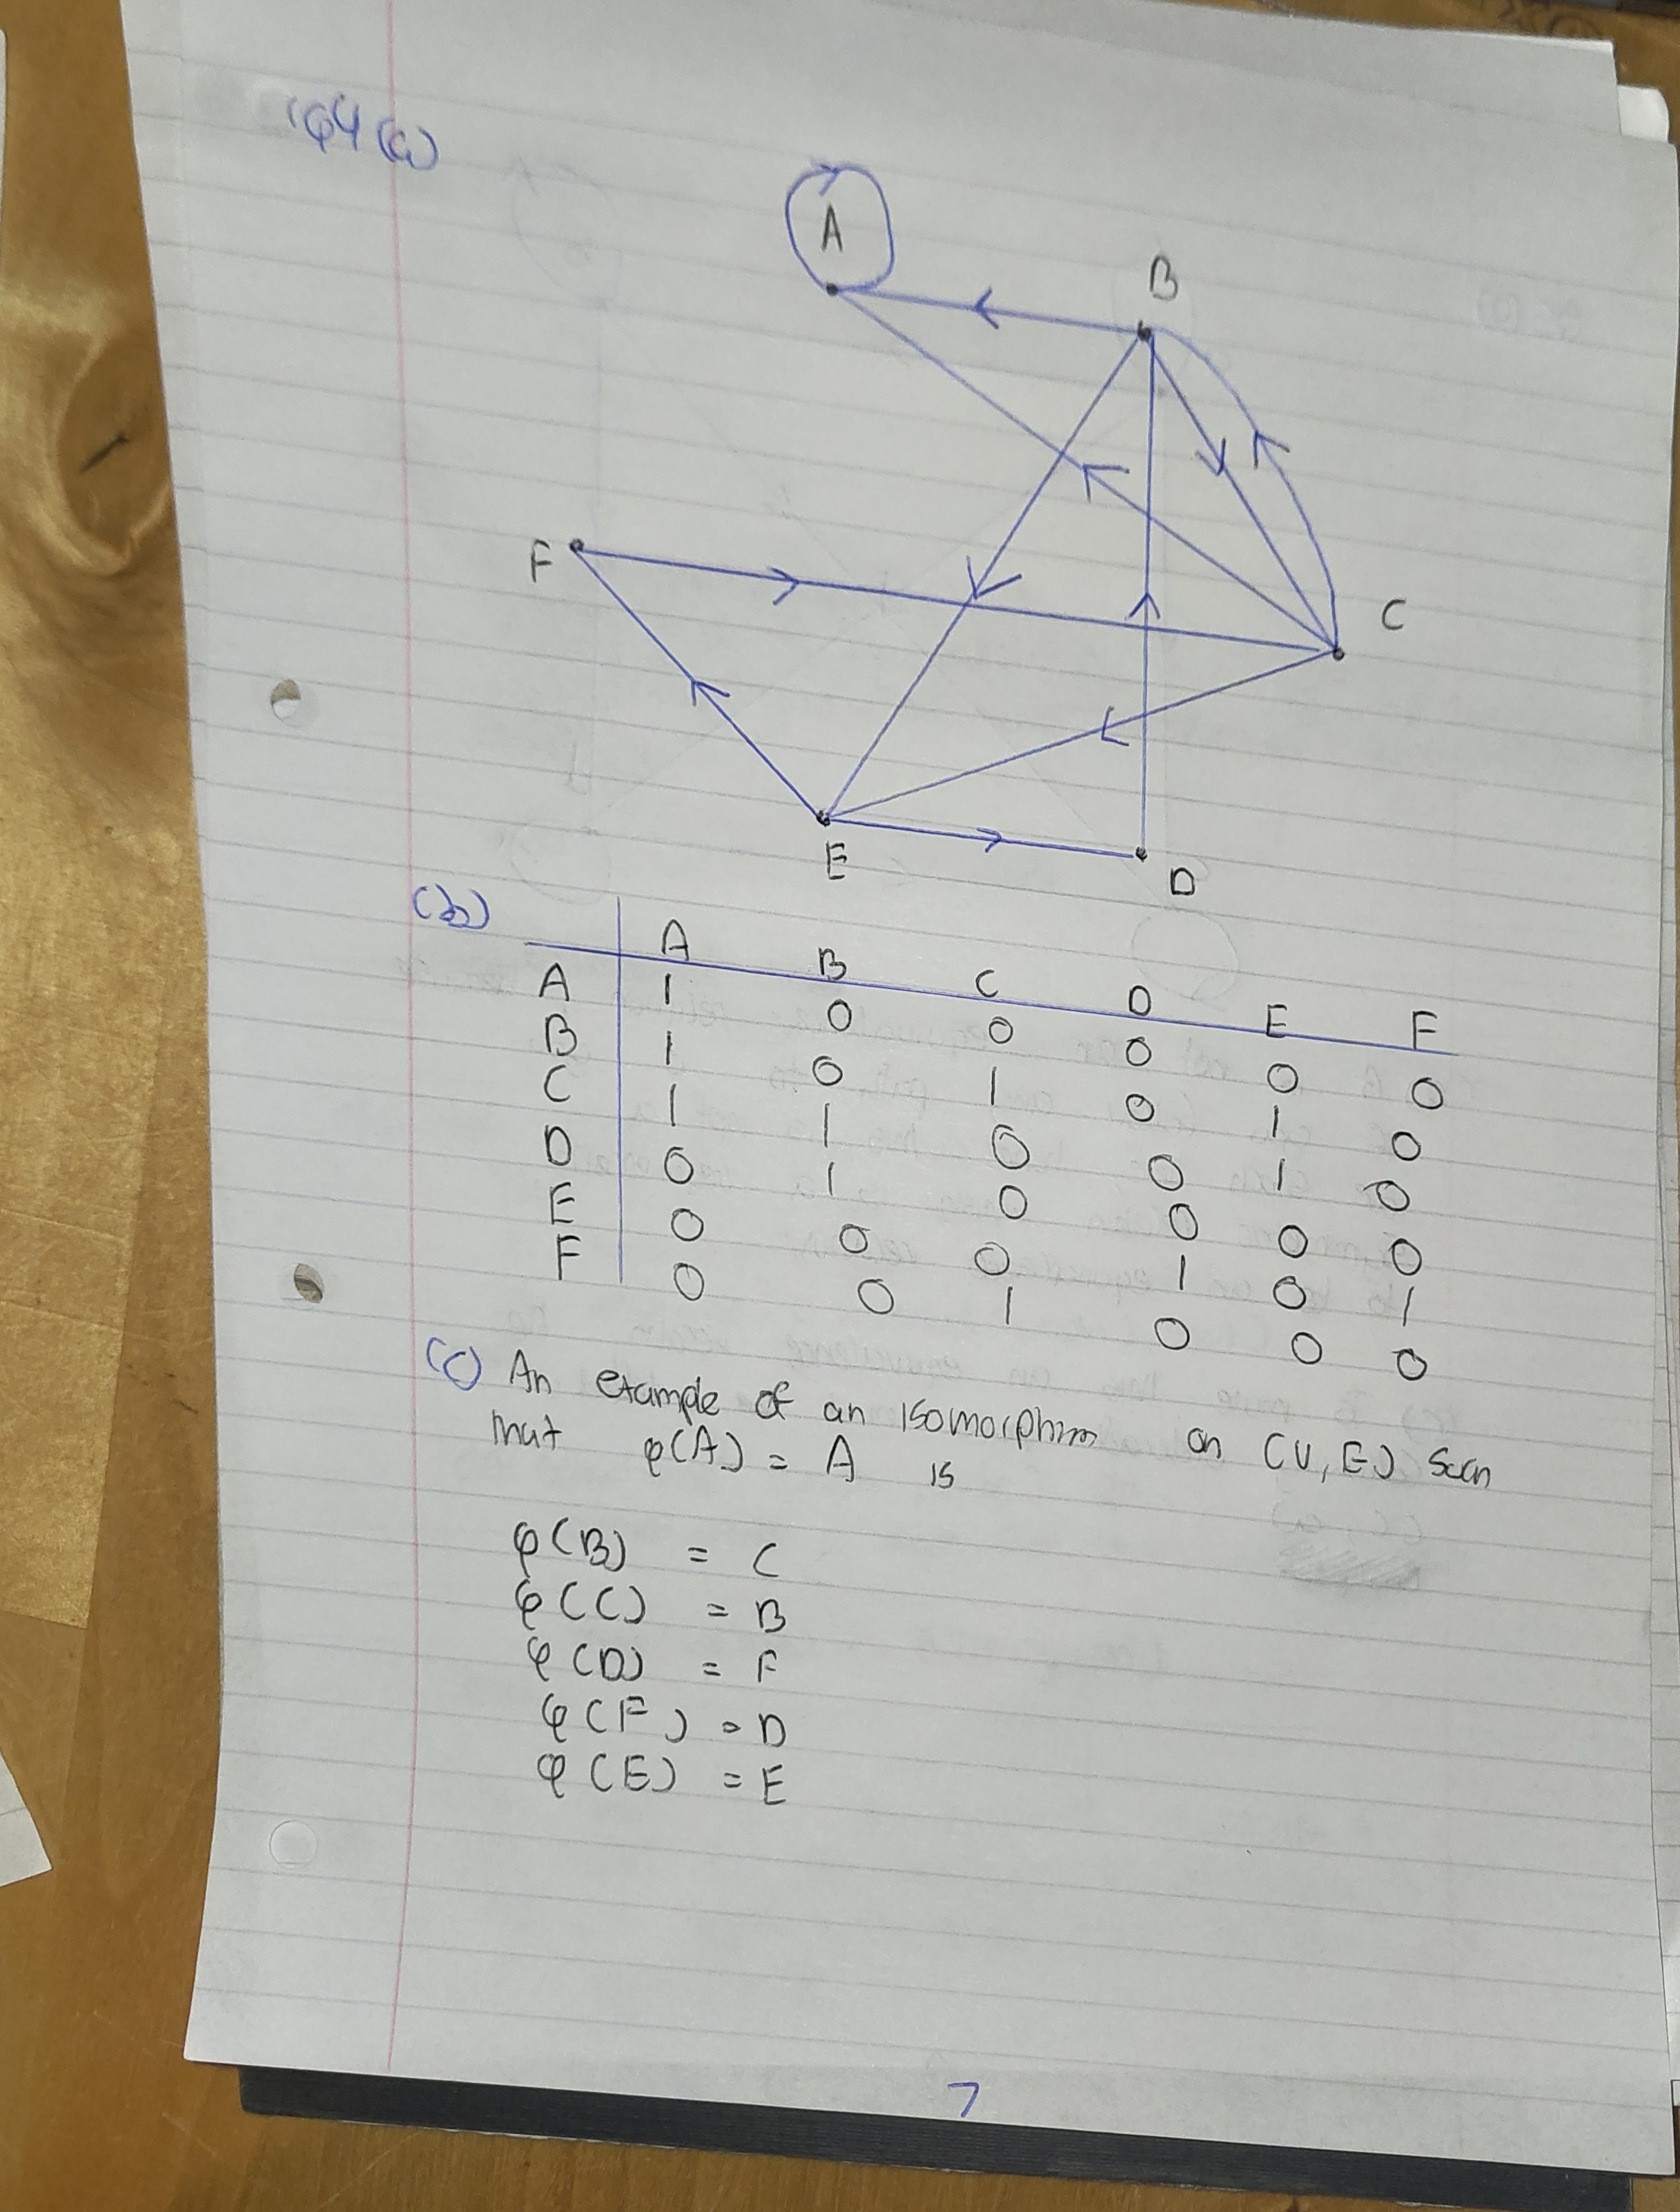 Q4 (a)
A
B
F
C
E
D
(b)
A B C D E F
A 1 0 0 0 0 0
B 1 0 1 0 1 0
C 1 1 0 0 1 0
D 0 1 0 0 0 0
E 0 0 0 1 0 1
F 0 0 1 0 0 0
(c) An example of an isomorphism on (V, E) such
that φ(A) = A is
φ(B) = C
φ(C) = B
φ(D) = F
φ(F) = D
φ(E) = E
7